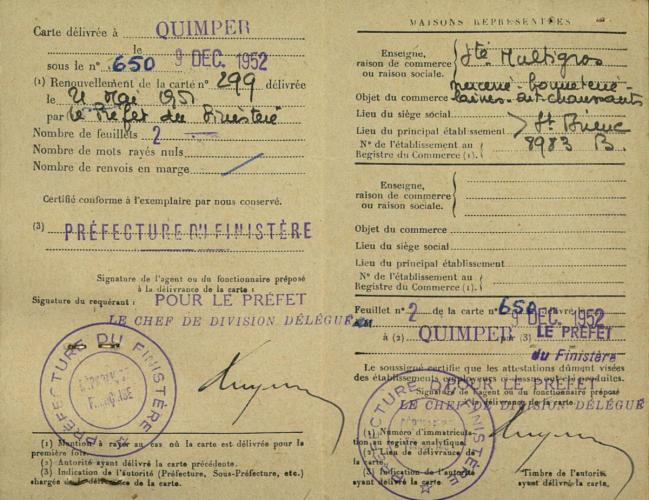 Carte délivrée à QUIMPER
le 9 DEC. 1952
sous le n° 650
(1) Renouvellement de la carte n° 299 délivrée
le 21 Mai 1951
par le Préfet du Finistère
Nombre de feuillets 2
Nombre de mots rayés nuls
Nombre de renvois en marge
Certifié conforme à l'exemplaire par nous conservé.
(3) PRÉFECTURE DU FINISTÈRE
Signature de l'agent ou du fonctionnaire préposé
à la délivrance de la carte :
Signature du requérant : POUR LE PRÉFET
LE CHEF DE DIVISION DÉLÉGUÉ
PRÉFECTURE DU FINISTÈRE
RÉPUBLIQUE
FRANÇAISE
(1) Mention à rayer au cas où la carte est délivrée pour la
première fois.
(2) Autorité ayant délivré la carte précédente.
(3) Indication de l'autorité (Préfecture, Sous-Préfecture, etc.)
chargée de la délivrance de la carte.
MAISONS REPRÉSENTÉES
Enseigne,
raison de commerce
ou raison sociale.
Sté Multigros
Objet du commerce mercerie - bonneterie -
laines - art. chaussants
Lieu du siège social
Lieu du principal établissement St Brieuc
N° de l'établissement au
Registre du Commerce (1). 8983 B.
Enseigne,
raison de commerce
ou raison sociale.
Objet du commerce
Lieu du siège social
Lieu du principal établissement
N° de l'établissement au
Registre du Commerce (1).
Feuillet n° 2 de la carte n° 650 délivré 9 DEC. 1952
à (2) QUIMPER par (3) LE PRÉFET
du Finistère
Le soussigné certifie que les attestations dûment visées
des établissements employeurs ont été produites.
POUR LE PRÉFET
Signature de l'agent ou du fonctionnaire préposé
à la délivrance de la carte.
LE CHEF DE DIVISION DÉLÉGUÉ
PRÉFECTURE DU FINISTÈRE
(1) Numéro d'immatricula-
tion au registre analytique.
(2) Lieu de délivrance de
la carte.
(3) Indication de l'autorité
ayant délivré la carte.
Timbre de l'autorité
ayant délivré la carte.